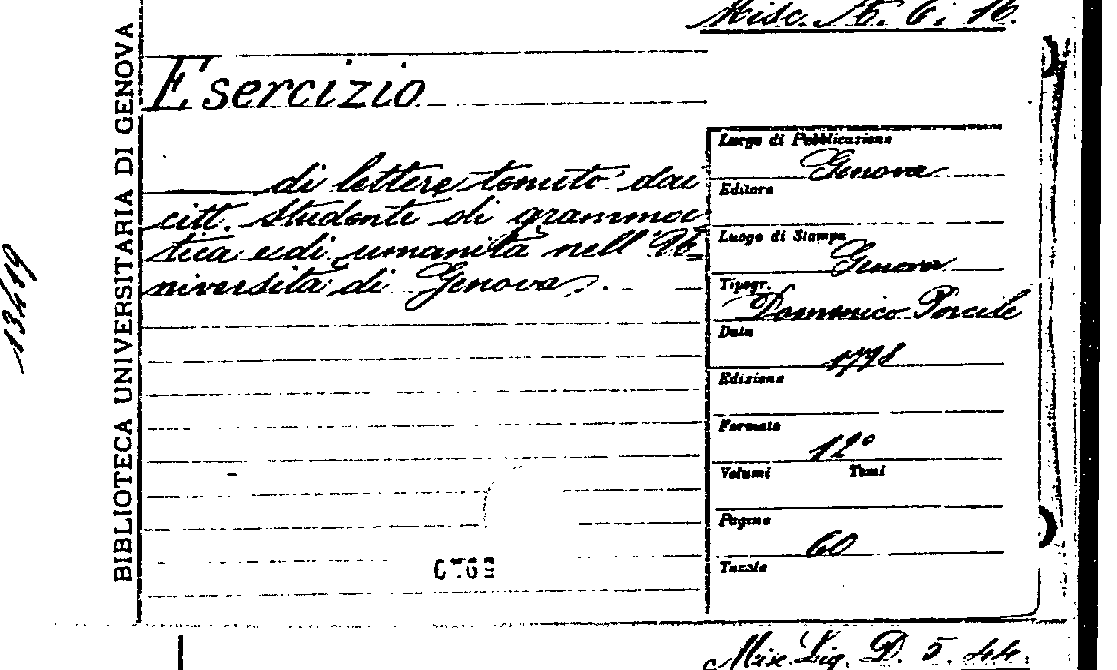 Misc. A. 6. 16.
Esercizio
di lettere tenuto dai
citt. studenti di gramma
tica e di umanità nell' U=
niversità di Genova.
Luogo di Pubblicazione
Genova
Editore
Luogo di Stampa
Genova
Tipogr.
Domenico Porcile
Data
1798
Edizione
Formato
12°
Volumi Tomi
Pagine
60
Tavole
BIBLIOTECA UNIVERSITARIA DI GENOVA
13419
0769
Misc. Lig. D. 5. 44.